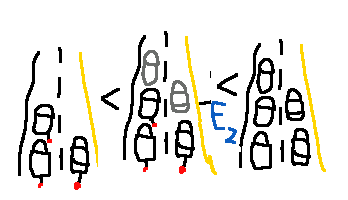 < < E₂